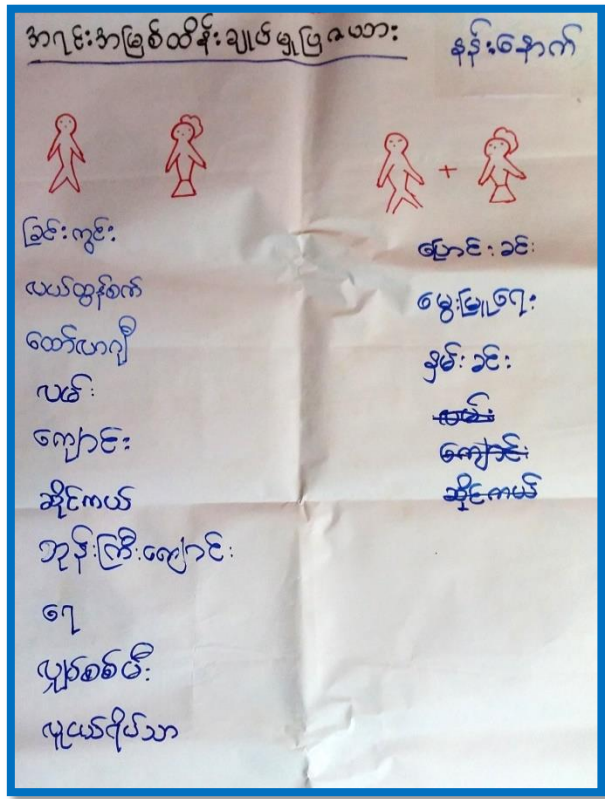 အရင်းအမြစ်ထိန်းချုပ်မှုပြဇယား
နန်းနောက်
+
ခြင်းကွင်း
လယ်ထွန်စက်
ထော်လာဂျီ
လမ်း
ကျောင်း
ဆိုင်ကယ်
ဘုန်းကြီးကျောင်း
ရေ
လျှပ်စစ်မီး
လူငယ်ရိပ်သာ
ပြောင်းခင်း
မွေးမြူရေး
နှမ်းခင်း
လမ်း
ကျောင်း
ဆိုင်ကယ်